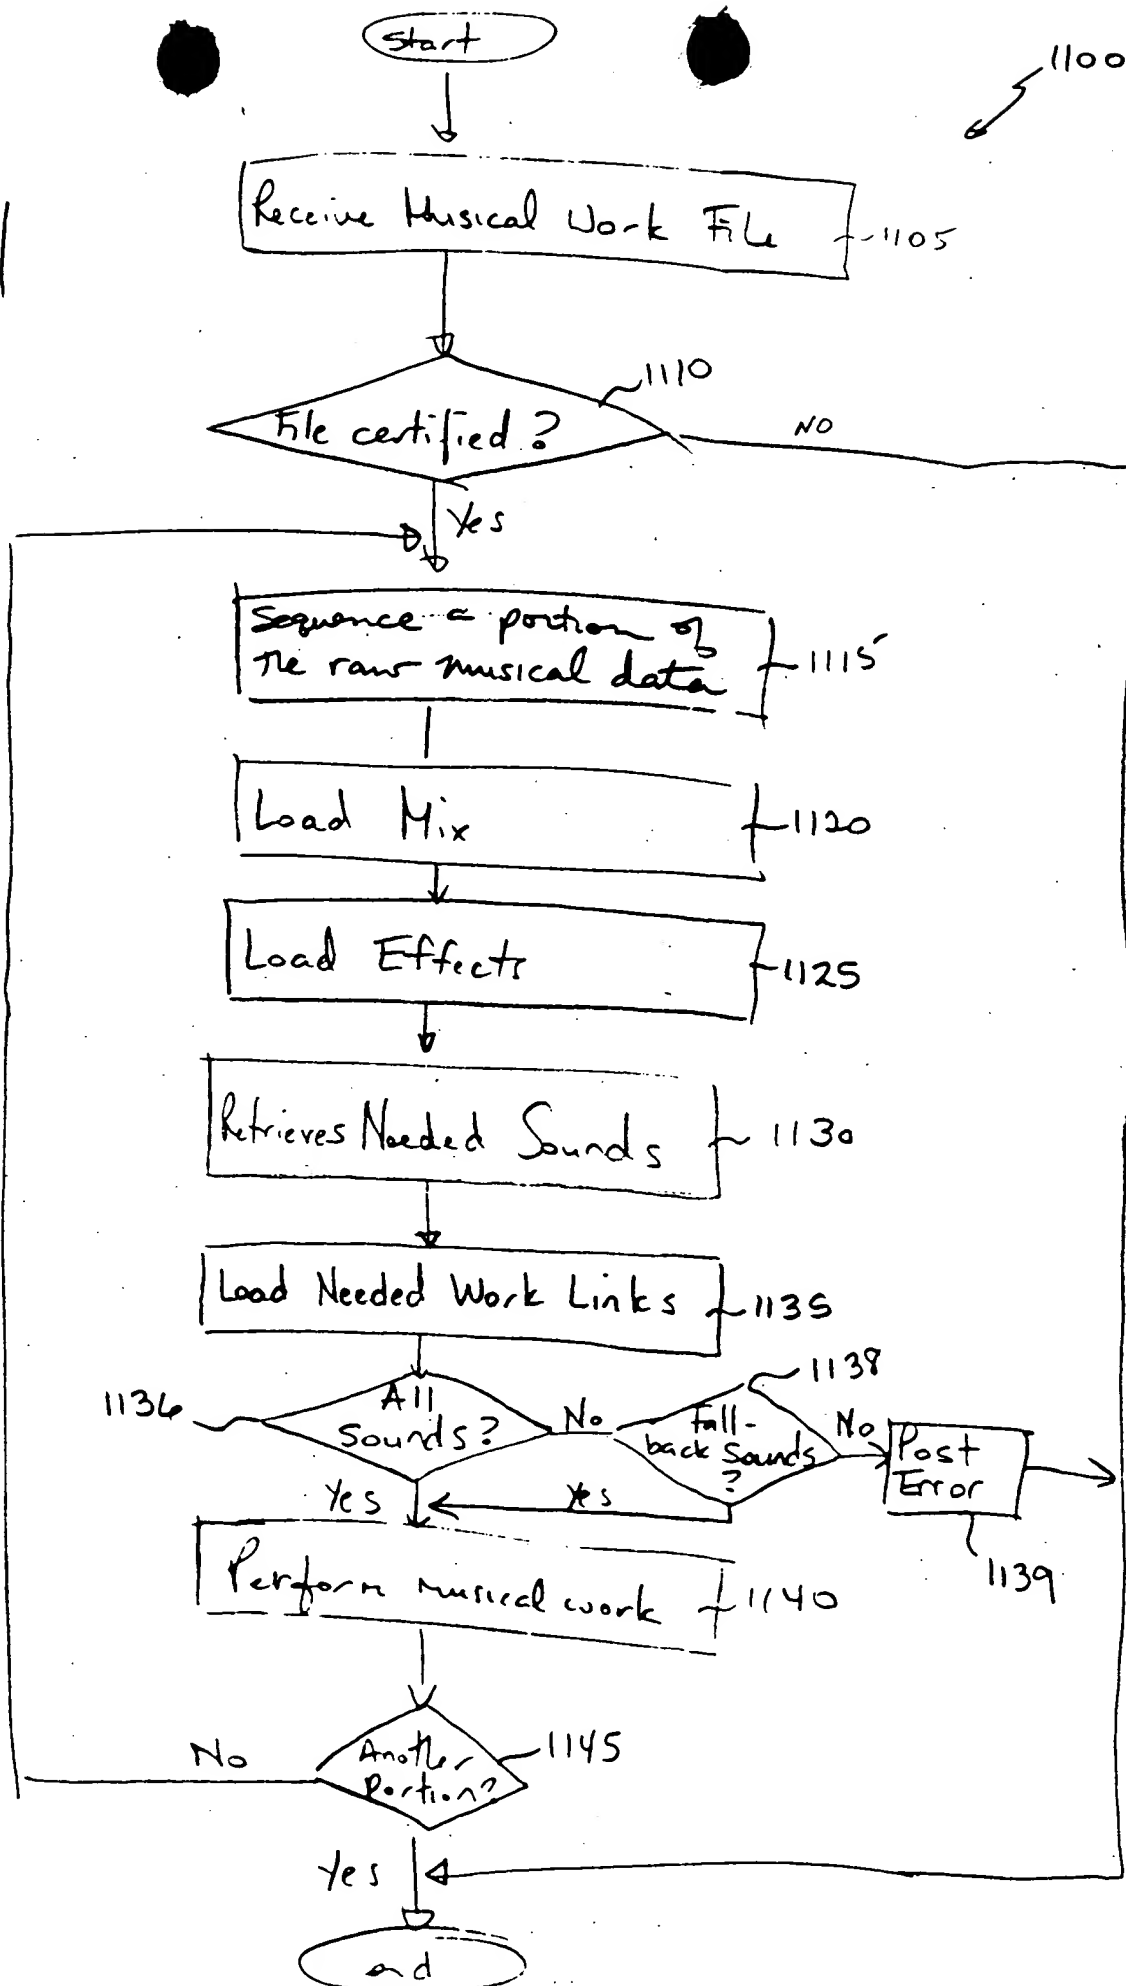 Start
1100
Receive Musical Work File
1105
1110
File certified?
NO
Yes
Sequence a portion of
the raw musical data
1115
Load Mix
1120
Load Effects
1125
Retrieves Needed Sounds
1130
Load Needed Work Links
1135
1138
1136
All
Sounds?
No
Fall-
back Sounds
?
No
Post
Error
Yes
Yes
1139
Perform musical work
1140
1145
No
Another
Portion?
Yes
end